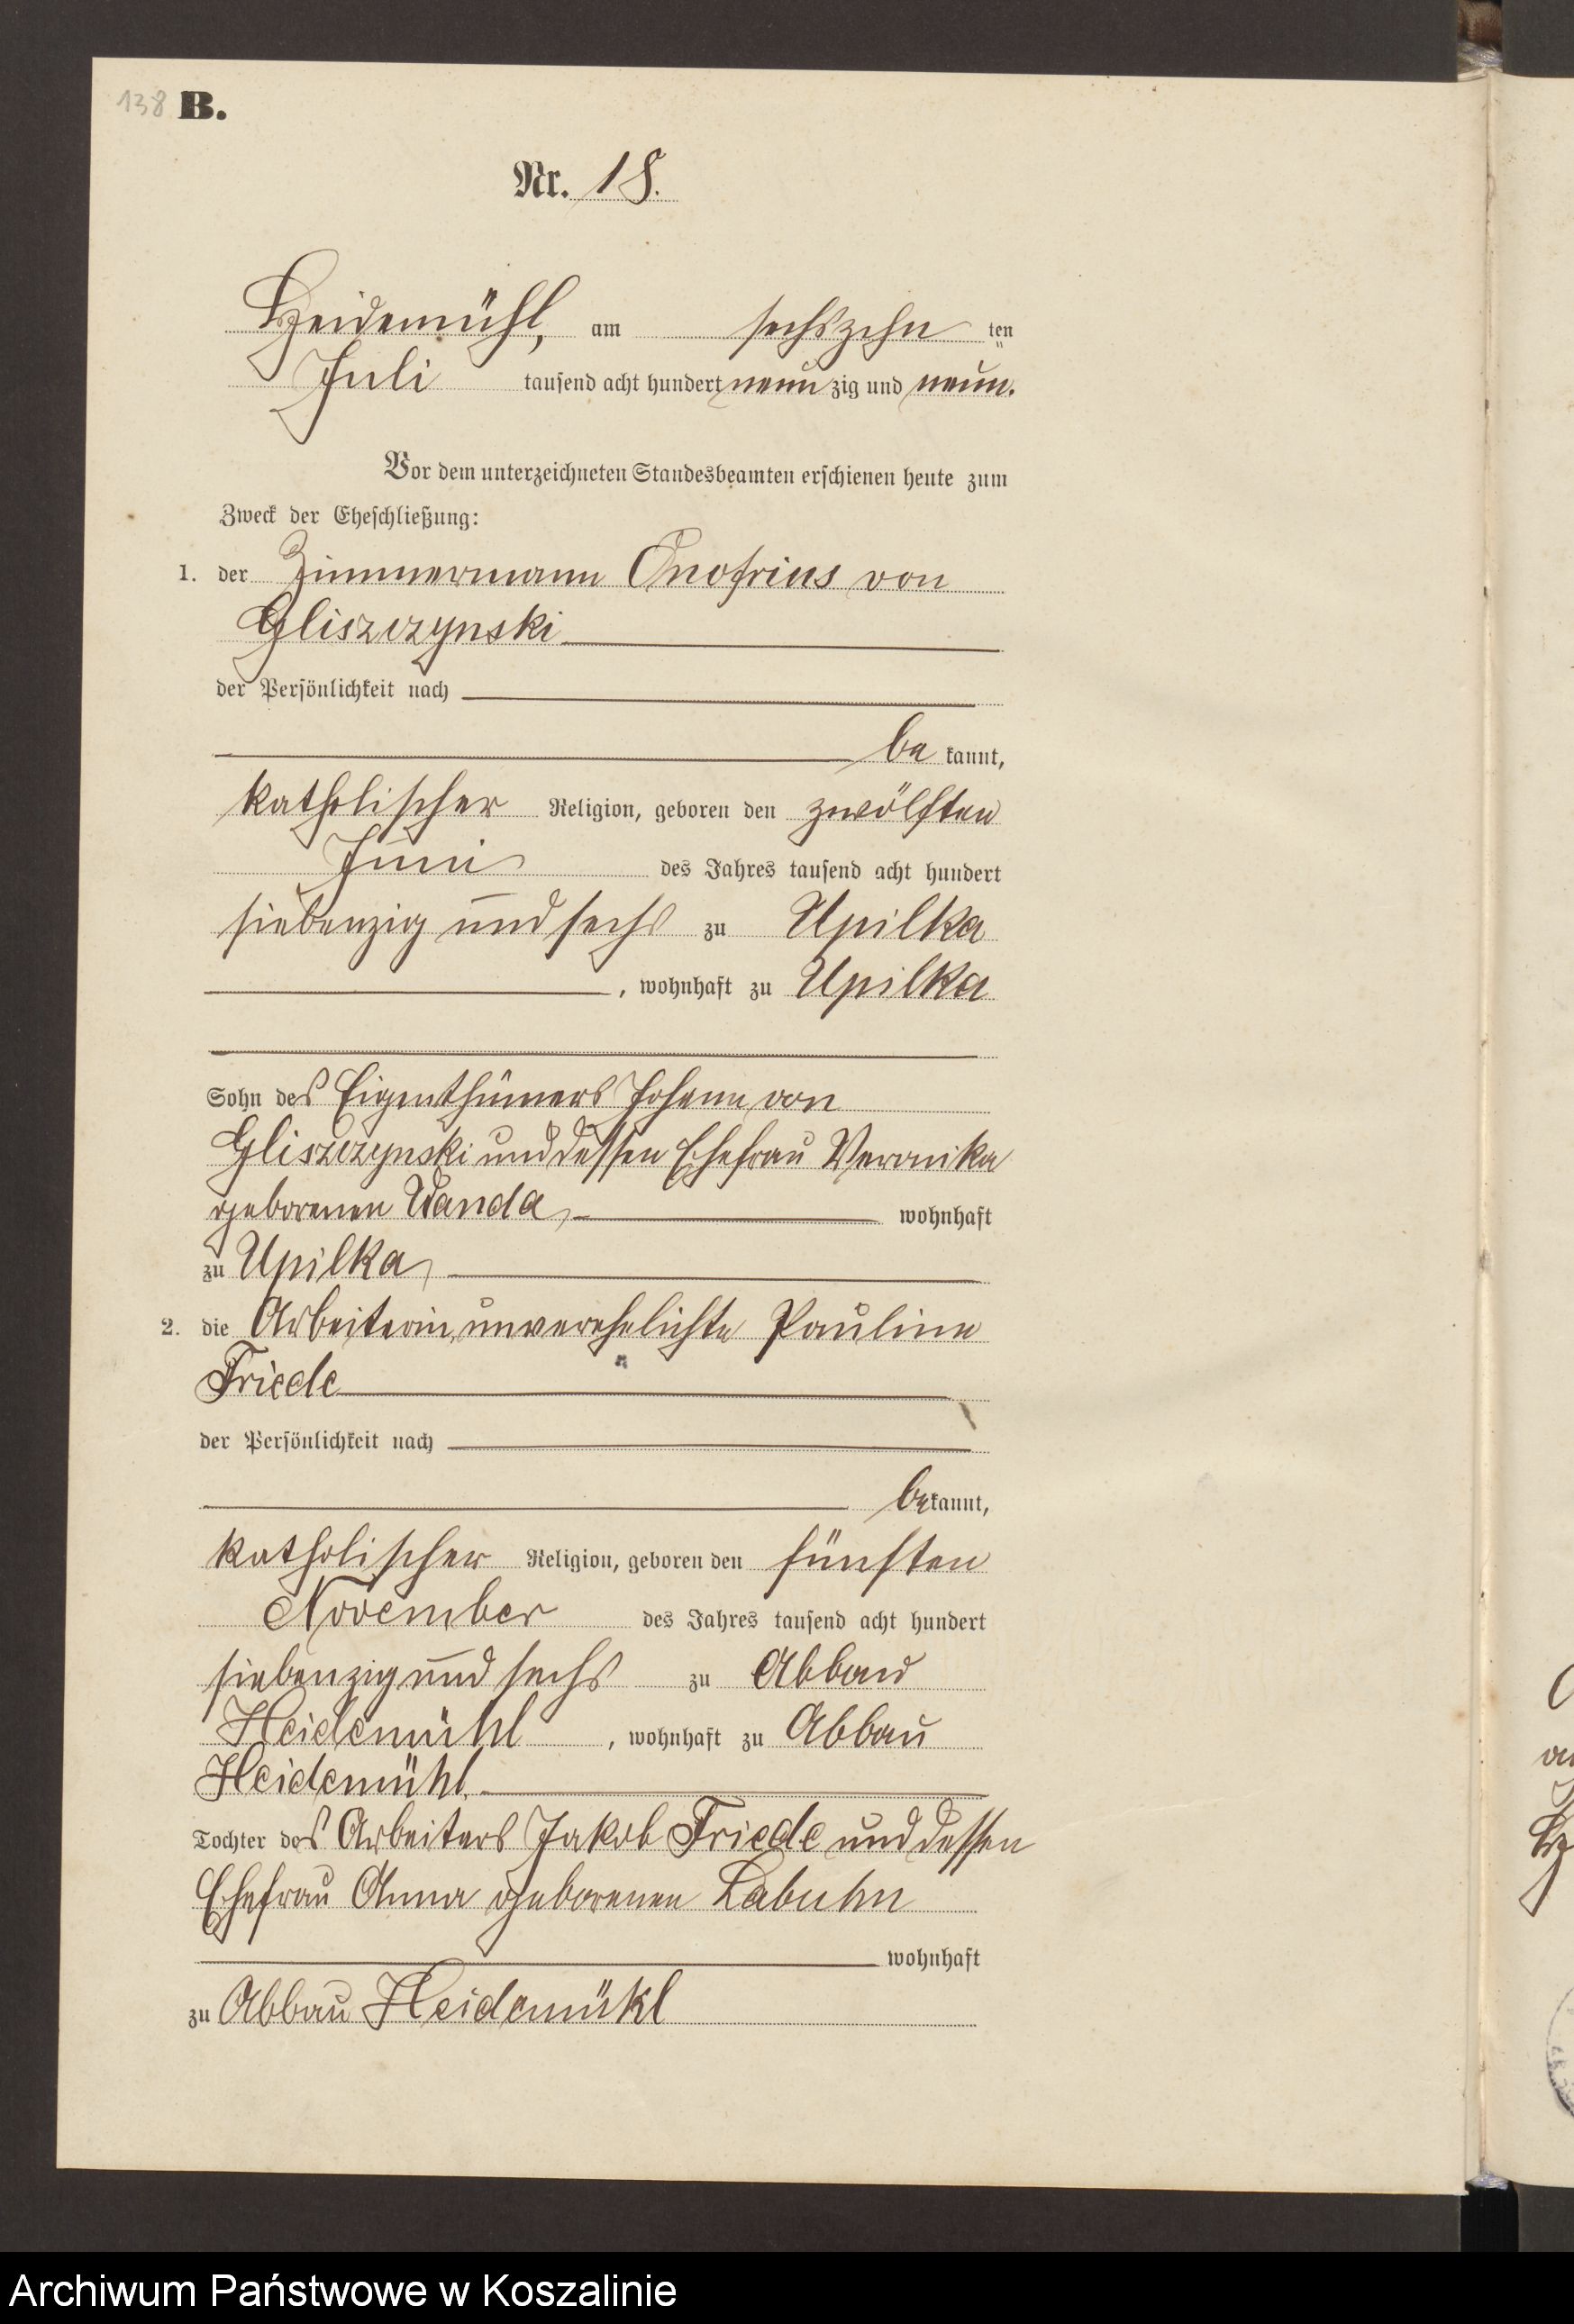 138 B.
Nr. 18.
Heidemühl, am sechszehn ten
Juli tausend acht hundert neun zig und neun.
Vor dem unterzeichneten Standesbeamten erschienen heute zum
Zweck der Eheschließung:
1. der Zimmermann Onofrius von
Gliszczynski
der Persönlichkeit nach
be kannt,
katholischer Religion, geboren den zwölften
Juni des Jahres tausend acht hundert
siebenzig und sechs zu Upilka
, wohnhaft zu Upilka
Sohn des Eigenthümers Johann von
Gliszczynski und dessen Ehefrau Veronika
geborenen Wanda, wohnhaft
zu Upilka,
2. die Arbeiterin, unverehelichte Pauline
Friede
der Persönlichkeit nach
bekannt,
katholischer Religion, geboren den fünften
November des Jahres tausend acht hundert
siebenzig und sechs zu Abbau
Heidemühl, wohnhaft zu Abbau
Heidemühl.
Tochter des Arbeiters Jakob Friede und dessen
Ehefrau Anna geborenen Labuhn
wohnhaft
zu Abbau Heidemühl
Archiwum Państwowe w Koszalinie